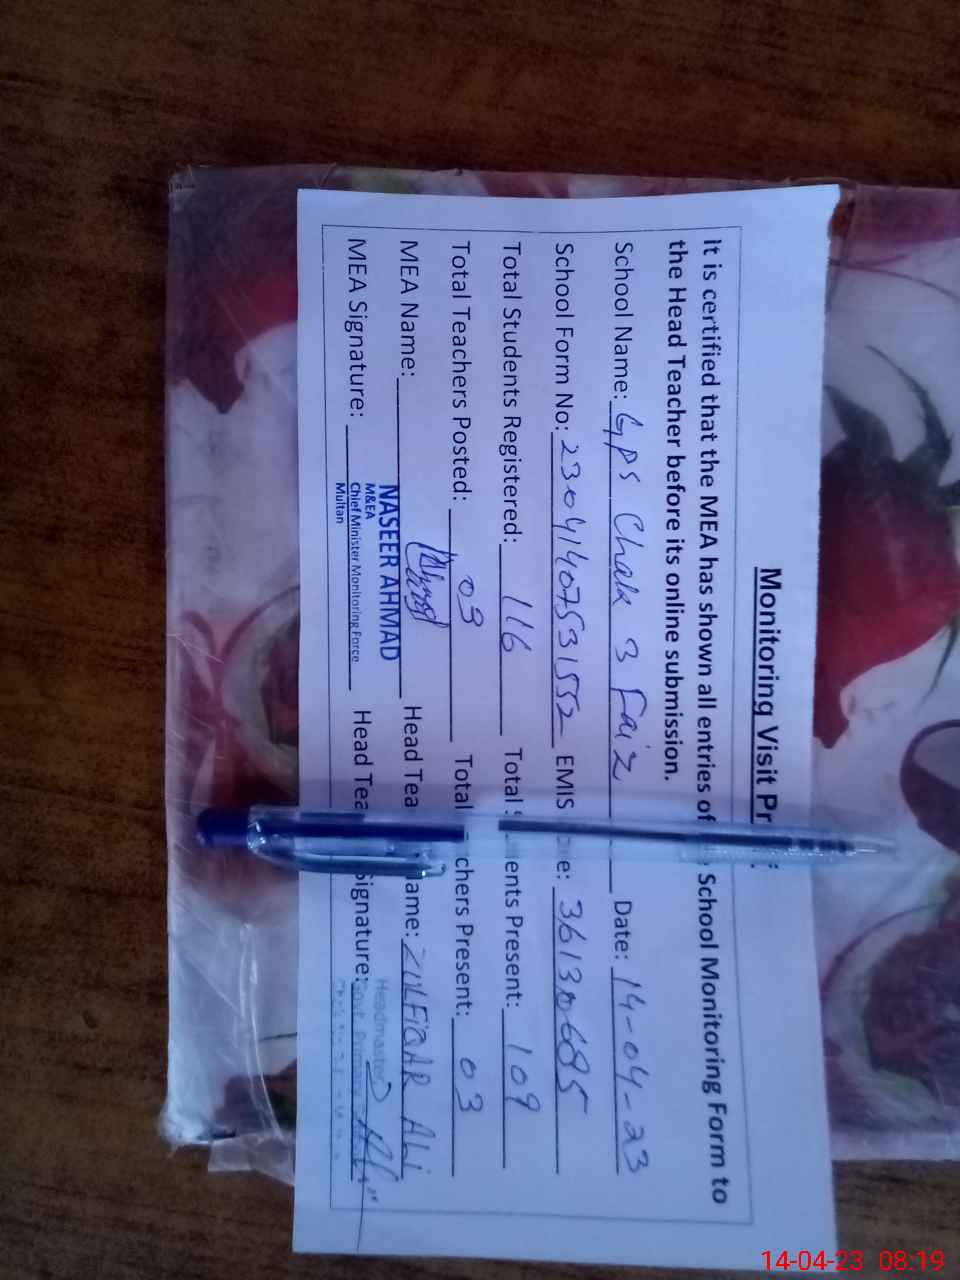 Monitoring Visit Pr
It is certified that the MEA has shown all entries of School Monitoring Form to
the Head Teacher before its online submission.
School Name: GPS Chak 3 Faiz Date: 14-04-23
School Form No: 23041407531552 EMIS e: 36130685
Total Students Registered: 116 Total S ents Present: 109
Total Teachers Posted: 03 Total chers Present: 03
MEA Name: Head Tea ame: ZULFIQAR ALi
NASEER AHMAD
M&EA
Chief Minister Monitoring Force
Multan
MEA Signature: Head Tea Signature:
Headmaster
Govt. Primary
14-04-23 08:19